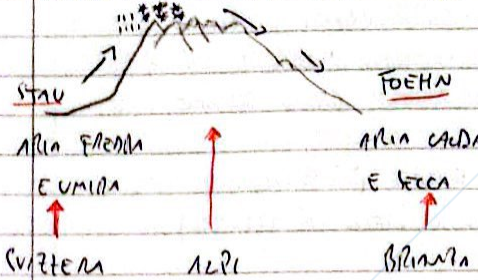 STAU
FOEHN
ARIA FREDDA
E UMIDA
ARIA CALDA
E SECCA
SVIZZERA
ALPI
BRIANZA